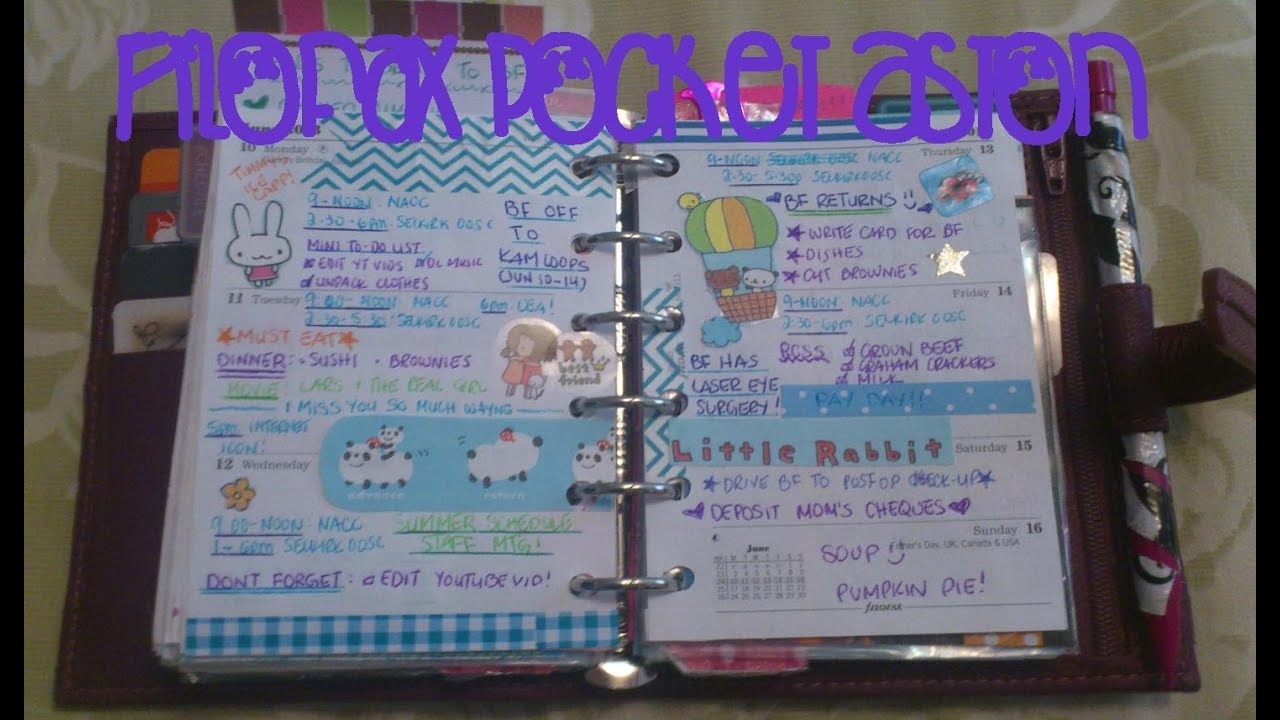 Filofax Pocket Aston
10 Monday
9-NOON: NACC
2:30-6pm SELKIRK OOSC
MINI TO-DO LIST:
EDIT YT VIDS DL MUSIC
UNPACK CLOTHES
BF OFF
TO
KAMLOOPS
(JUN 10-14)
11 Tuesday
9:00-NOON: NACC
2:30-5:30 SELKIRK OOSC
6pm
MUST EAT
DINNER: • SUSHI • BROWNIES
MOVIE: LARS + THE REAL GIRL
best
friend
I MISS YOU SO MUCH
5pm INTERNET
12 Wednesday
advance
return
9:00-NOON: NACC
1-6pm SELKIRK OOSC
SUMMER SCHEDULING
STAFF MTG!
DONT FORGET: EDIT YOUTUBE VID!
Thursday 13
9-NOON NACC
2:30-5:30 SELKIRK OOSC
BF RETURNS
WRITE CARD FOR BF
DISHES
CUT BROWNIES
Friday 14
9-NOON: NACC
2:30-6pm SELKIRK OOSC
BF HAS
LASER EYE
SURGERY!
GROUN BEEF
GRAHAM CRACKERS
MILK
PAY DAY!!
Little Rabbit
Saturday 15
DRIVE BF TO POST OP CHECK-UP
DEPOSIT MOM'S CHEQUES
Sunday 16
Father's Day, UK, Canada & USA
June
SOUP
PUMPKIN PIE!
filofax